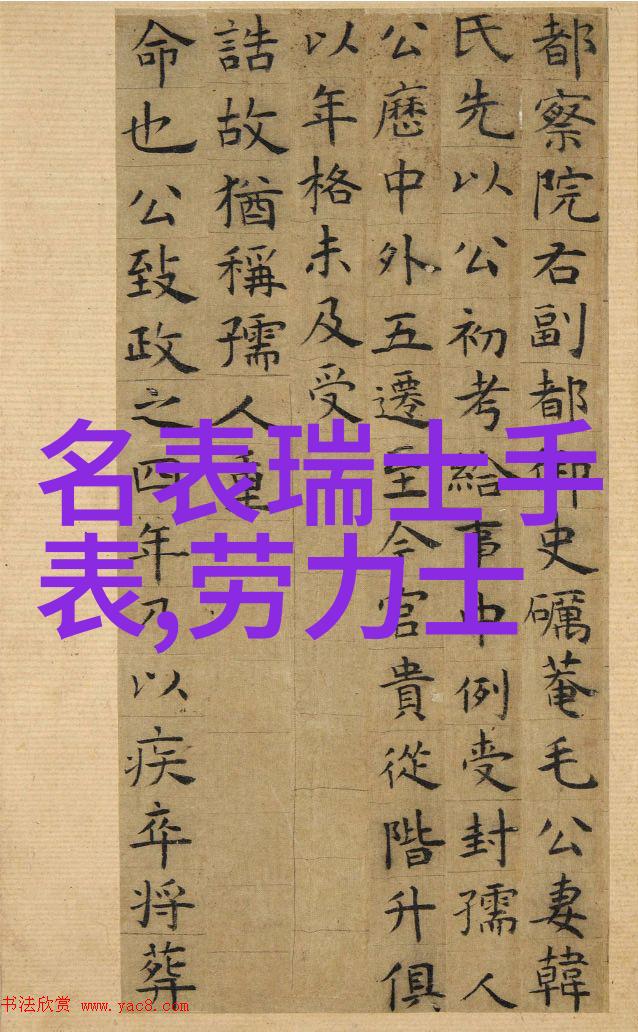 都察院右副都御史礪菴毛公妻韓
氏先以公初考給事中例受封孺人
公歷中外五遷至今官貴從階升俱
以年格未及受
誥故猶稱孺人重
命也公致政之四年乃以疾卒将葬
名表瑞士手
表,劳力士
书法欣赏 www.yac8.com